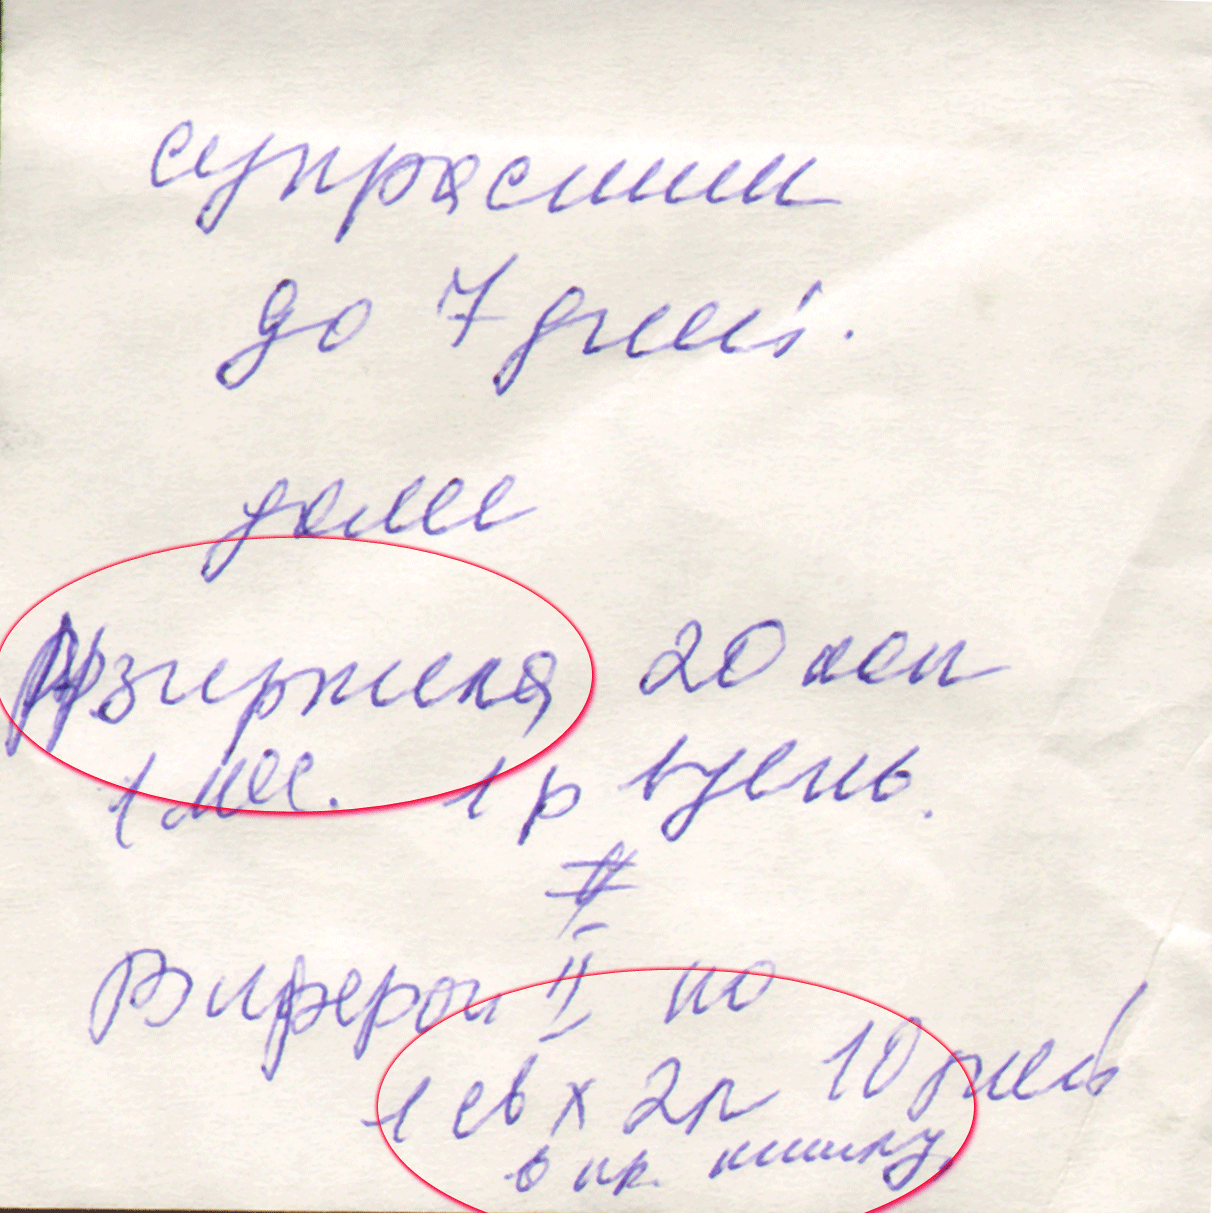 супрастин
до 7 дней.
далее
20 кап
1 мес. 1 р в день.
#
Виферон II по
1 св х 2 р 10 дней
в пр. кишку